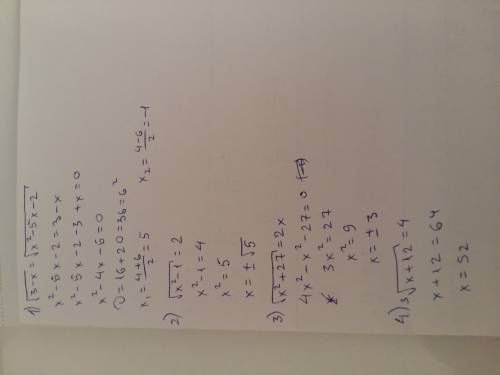 1) √3-x = √x²-5x-2
x²-5x-2=3-x
x²-5x-2-3+x=0
x²-4x-6=0
D=16+20=36=6²
x₁=4+6/2=5 x₂=4-6/2=-1
2) √x²-1=2
x²-1=4
x²=5
x=±√5
3) √x²+27=2x
4x²-x²-27=0
3x²=27
x²=9
x=±3
4) ³√x+12=4
x+12=64
x=52